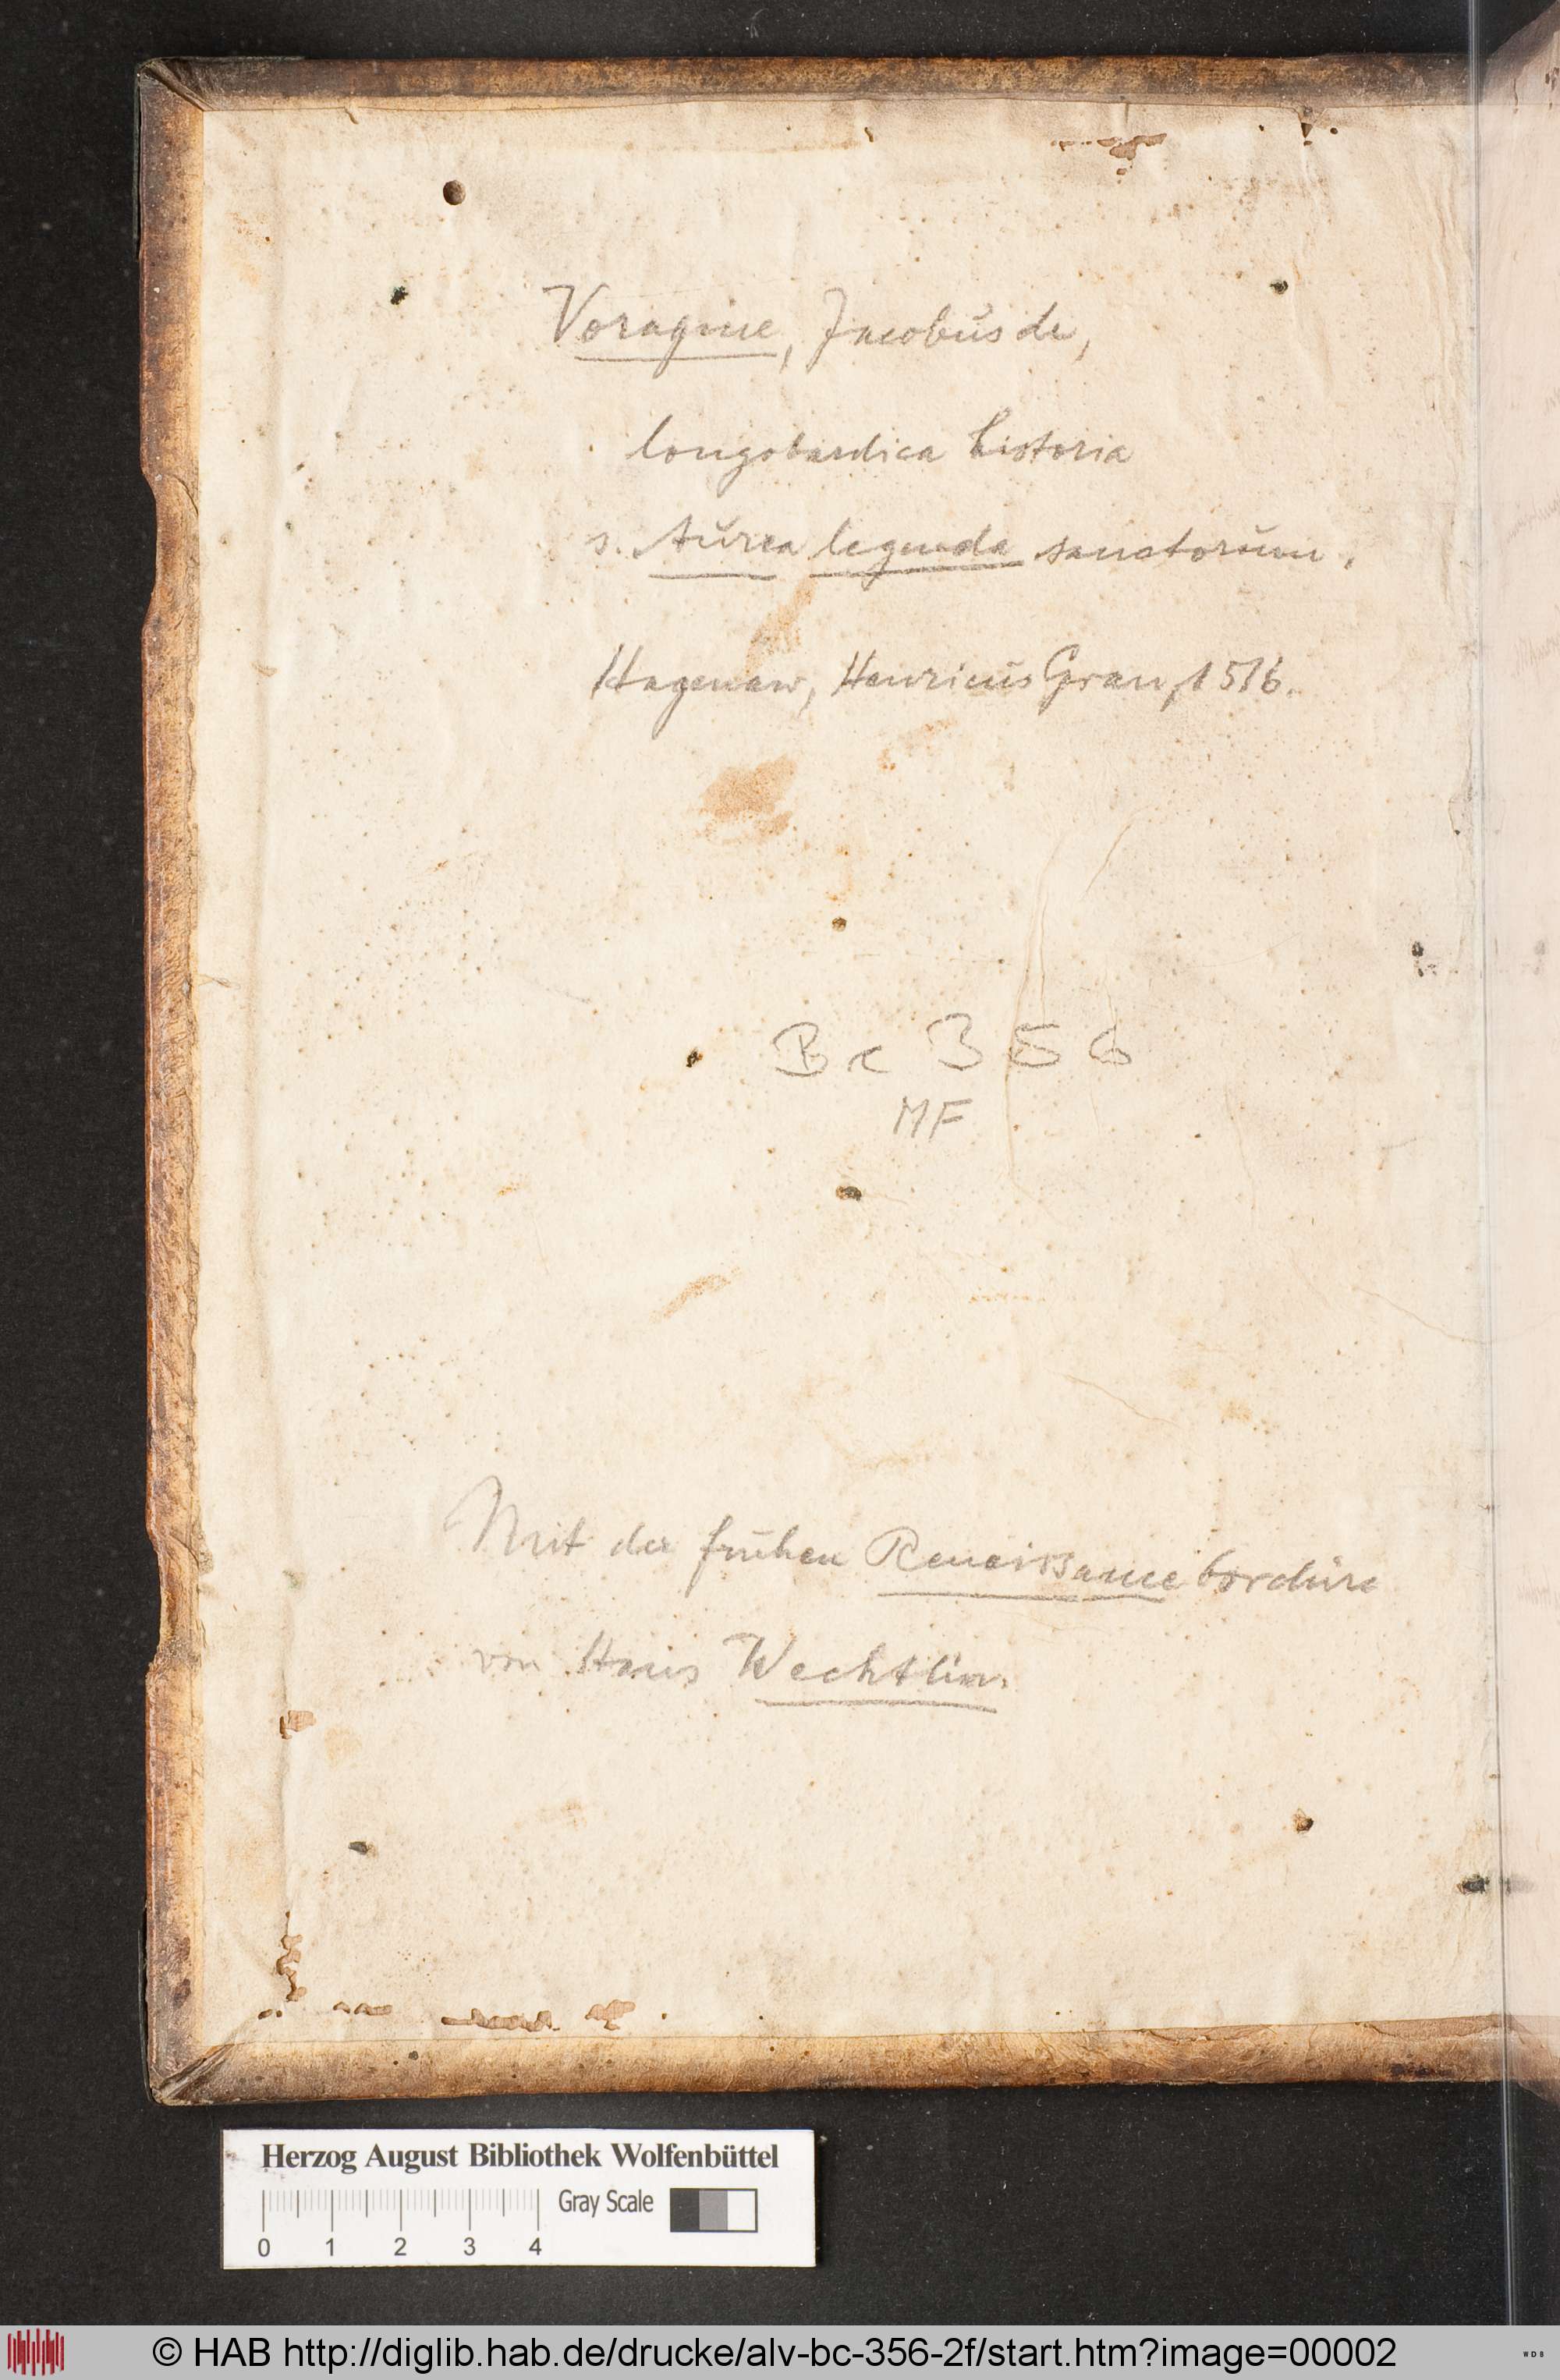 Voragine, Jacobus de,
longobardica historia
s. Aurea legenda sanctorum.
Hagenaw, Henricus Gran, 1516.
Bc 356
MF
Mit der frühen Renaissancebordüre
von Hans Wechtlin.
Herzog August Bibliothek Wolfenbüttel
Gray Scale
0 1 2 3 4
© HAB http://diglib.hab.de/drucke/alv-bc-356-2f/start.htm?image=00002
WDB